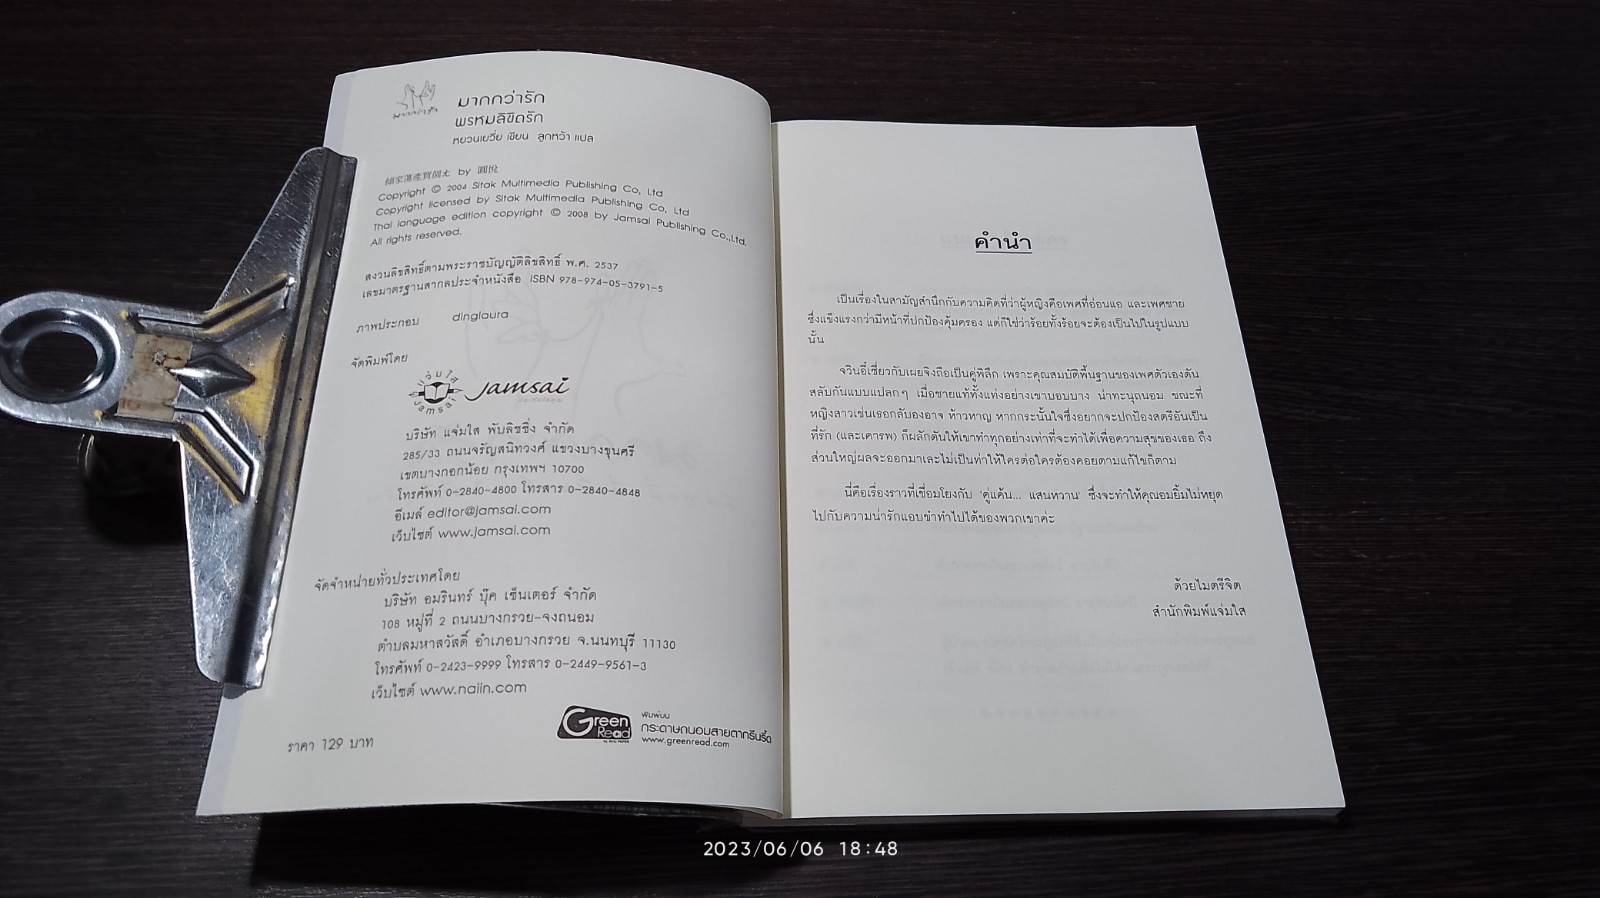 มากกว่ารัก
มากกว่ารัก
พรหมลิขิตรัก
หยวนเยวี่ย เขียน ลูกหว้า แปล
by 圓悅
Copyright © 2004 Sitak Multimedia Publishing Co, Ltd
Copyright licensed by Sitak Multimedia Publishing Co, Ltd
Thai language edition copyright © 2008 by Jamsai Publishing Co.,Ltd.
All rights reserved.
สงวนลิขสิทธิ์ตามพระราชบัญญัติลิขสิทธิ์ พ.ศ. 2537
เลขมาตรฐานสากลประจำหนังสือ ISBN 978-974-05-3791-5
ภาพประกอบ dinglaura
จัดพิมพ์โดย
แจ่มใส
Jamsai
Jamsai
บริษัท แจ่มใส พับลิชชิ่ง จำกัด
285/33 ถนนจรัญสนิทวงศ์ แขวงบางขุนศรี
เขตบางกอกน้อย กรุงเทพฯ 10700
โทรศัพท์ 0-2840-4800 โทรสาร 0-2840-4848
อีเมล์ editor@jamsai.com
เว็บไซต์ www.jamsai.com
จัดจำหน่ายทั่วประเทศโดย
บริษัท อมรินทร์ บุ๊ค เซ็นเตอร์ จำกัด
108 หมู่ที่ 2 ถนนบางกรวย-จงถนอม
ตำบลมหาสวัสดิ์ อำเภอบางกรวย จ.นนทบุรี 11130
โทรศัพท์ 0-2423-9999 โทรสาร 0-2449-9561-3
เว็บไซต์ www.naiin.com
Green Read
พิมพ์บน
กระดาษถนอมสายตากรีนรี้ด
www.greenread.com
ราคา 129 บาท
คำนำ
เป็นเรื่องในสามัญสำนึกกับความคิดที่ว่าผู้หญิงคือเพศที่อ่อนแอ และเพศชาย
ซึ่งแข็งแรงกว่ามีหน้าที่ปกป้องคุ้มครอง แต่ก็ใช่ว่าร้อยทั้งร้อยจะต้องเป็นไปในรูปแบบ
นั้น
จวินอี้เซี่ยวกับเผยจิงถือเป็นคู่พิลึก เพราะคุณสมบัติพื้นฐานของเพศตัวเองดัน
สลับกันแบบแปลกๆ เมื่อชายแท้ทั้งแท่งอย่างเขาบอบบาง น่าทะนุถนอม ขณะที่
หญิงสาวเช่นเธอกลับองอาจ ห้าวหาญ หากกระนั้นใจซึ่งอยากจะปกป้องสตรีอันเป็น
ที่รัก (และเคารพ) ก็ผลักดันให้เขาทำทุกอย่างเท่าที่จะทำได้เพื่อความสุขของเธอ ถึง
ส่วนใหญ่ผลจะออกมาเละไม่เป็นท่าให้ใครต่อใครต้องคอยตามแก้ไขก็ตาม
นี่คือเรื่องราวที่เชื่อมโยงกับ 'คู่แค้น... แสนหวาน' ซึ่งจะทำให้คุณอมยิ้มไม่หยุด
ไปกับความน่ารักแอบขำทำไปได้ของพวกเขาค่ะ
ด้วยไมตรีจิต
สำนักพิมพ์แจ่มใส
2023/06/06 18:48